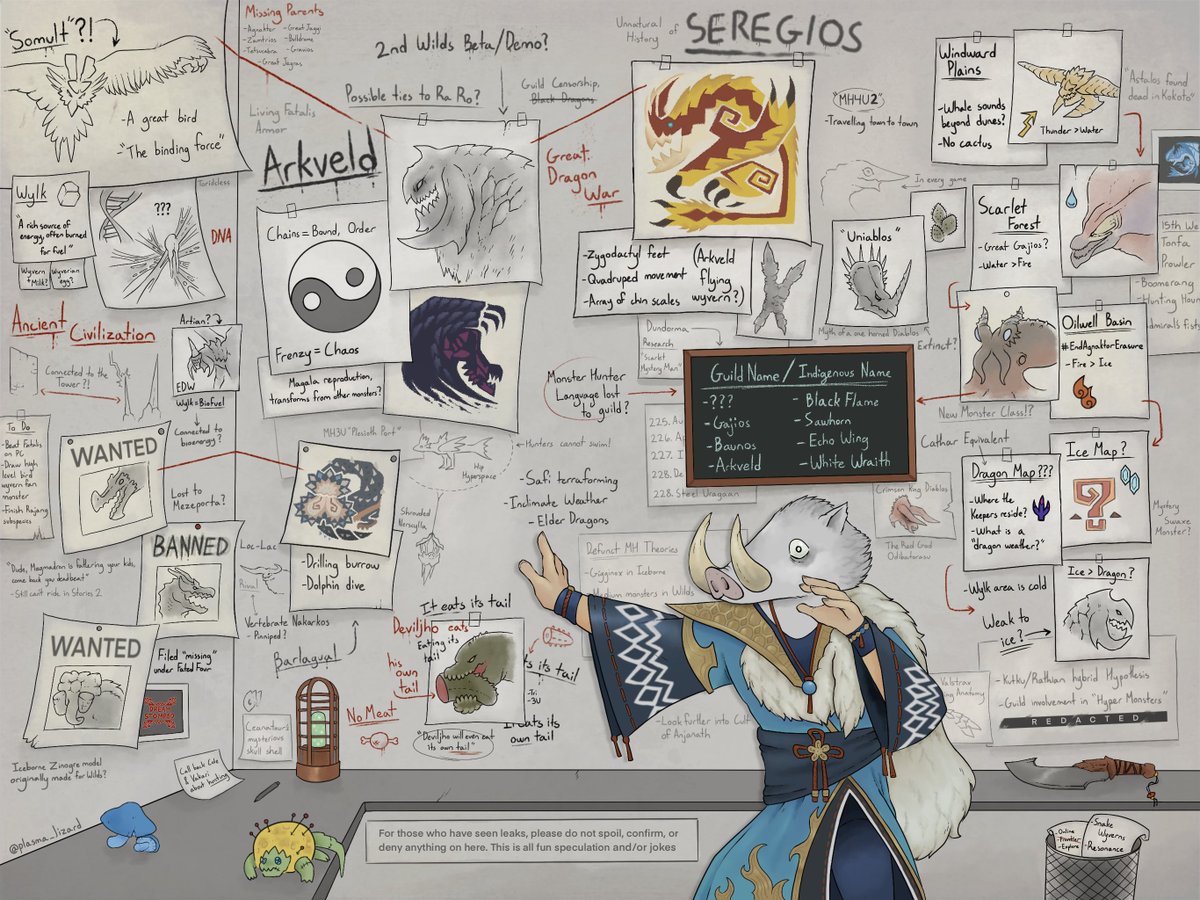 "Somult"?!
-A great bird
-"The binding force"
Missing Parents
-Agnaktor
-Zamtrios
-Tetsucabra
-Great Jaggi
-Bulldrome
-Gravios
-Great Jagras
2nd Wilds Beta/Demo?
Possible ties to Ra Ro?
Guild Censorship,
Black Dragons
Living Fatalis
Armor
Arkveld
Great
Dragon
War
Unnatural
History
of
SEREGIOS
"MH4U2"
-Travelling town to town
In every game
Windward
Plains
-Whale sounds
beyond dunes?
-No cactus
Thunder > Water
"Astalos found
dead in Kokoto"
Wylk
"A rich source of
energy, often burned
for fuel"
Wyvern
+ Milk?
Wyverian
egg?
Toridcless
???
DNA
Chains = Bound, Order
Frenzy = Chaos
Magala reproduction,
transforms from other monsters?
-Zygodactyl feet
-Quadruped movement
-Array of chin scales
(Arkveld
flying
wyvern?)
"Uniablos"
Myth of a one horned Diablos
Extinct?
Scarlet
Forest
-Great Gajios?
-Water > Fire
15th We
Tonfa
Prowler
-Boomerang
-Hunting Houn
Admirals fists
Ancient Civilization
Connected to the
Tower?!
Artian?
EDW
Wylk = BioFuel
Connected to
bioenergy?
Dundorma
Research
"Scarlet
Mystery Man"
Monster Hunter
Language lost
to guild?
Guild Name / Indigenous Name
-???
-Gajios
-Baunos
-Arkveld
-Black Flame
-Sawhorn
-Echo Wing
-White Wraith
225. Au
226. A
227. I
228. De
228. Steel Uragaan
New Monster Class!?
Oilwell Basin
#EndAgnaktorErasure
-Fire > Ice
To Do
-Beat Fatalis
on PC
-Draw high
level bird
wyvern fan
monster
-Finish Rajang
subspecies
WANTED
Lost to
Mezeporta?
MH3U "Plesioth Port"
Hip
Hyperspace
-Hunters cannot swim!
-Safi terraforming
-Inclimate Weather
-Elder Dragons
Shrouded
Nerscylla
-Drilling burrow
-Dolphin dive
Cathar Equivalent
Dragon Map???
-Where the
Keepers reside?
-What is a
"dragon weather?"
Ice Map?
Mystery
Swaxe
Monster?
Crimson Rng Diablos
The Red God
Odibatorasu
BANNED
"Dude, Magmadron is fathering your kids,
come back you deadbeat"
-Still can't ride in Stories 2
Lac-Lac
Rival
Vertebrate Nakarkos
-Pinniped?
Barlagual
Defunct MH Theories
-Gigginox in Iceborne
-Medium monsters in Wilds
-Wylk area is cold
Weak to
ice?
Ice > Dragon?
WANTED
Filed "missing"
under Fated Four
DREAM
STOMPED
It eats its tail
Deviljho eats
his
own
tail
Eating its
tail
ts its tail
-Tri
-3U
It eats its
own tail
"Deviljho will even eat
its own tail"
No Meat
Ceanataur's
mysterious
skull shell
-Look further into Cult
of Anjanath
Valstrax
Wing Anatomy
-Kutku/Rathian hybrid Hypothesis
-Guild involvement in "Hyper Monsters"
REDACTED
Iceborne Zinogre model
originally made for Wilds?
Call back Cole
& Yakari
about hunting
@plasma_lizard
For those who have seen leaks, please do not spoil, confirm, or
deny anything on here. This is all fun speculation and/or jokes
-Online
-Frontier
-Explore
-Snake
Wyverns
-Resonance